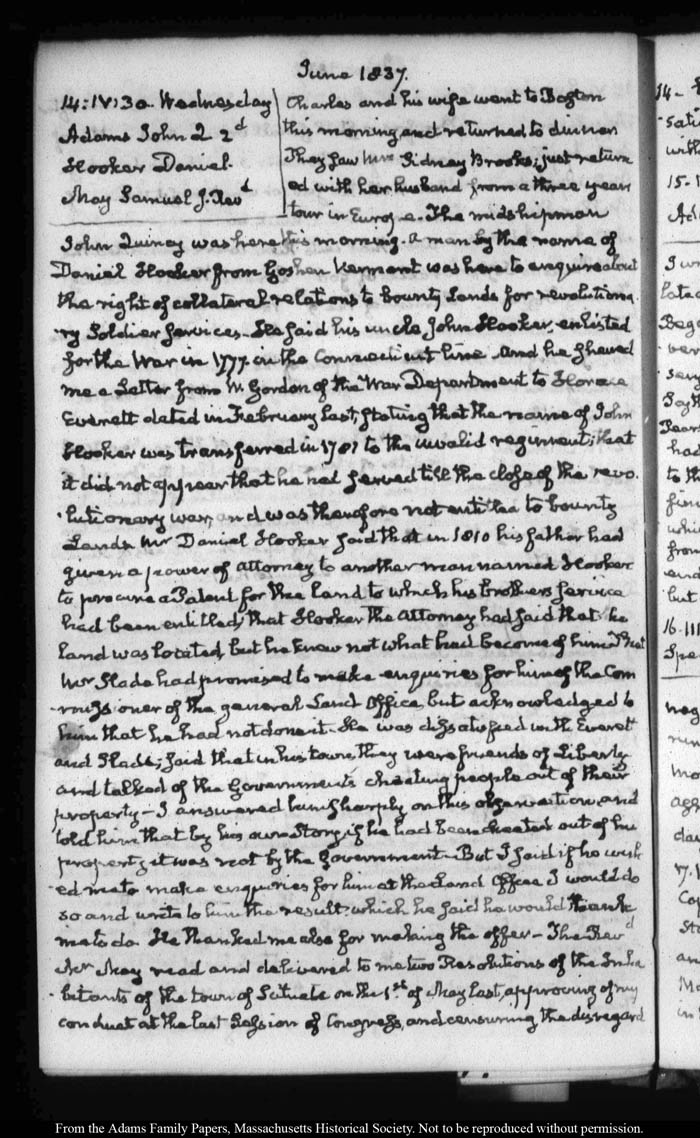 June 1837.
14: IV: 30. Wednesday
Adams John Q 2d
Hooker Daniel.
May Samuel J. Revd
Charles and his wife went to Boston
this morning, and returned to dinner
They saw Mrs Sidney Brooks; just return
ed with her husband from a three years
tour in Europe. The midshipman
John Quincy was here this morning. A man by the name of
Daniel Hooker from Goshen Vermont was here to enquire about
the right of collateral relations to bounty Lands for revolutiona
ry Soldier services. He said his uncle John Hooker, enlisted
for the War in 1777. in the Connecticut line. And he shewed
me a Letter from W. Gordon of the War Department to Horace
Everett dated in February last, stating that the name of John
Hooker was transferred in 1781 to the invalid regiment; that
it did not appear that he had served till the close of the revo.
lutionary war, and was therefore not entitled to bounty
Lands. Mr Daniel Hooker said that in 1810 his father had
given a power of attorney to another man named Hooker
to procure a Patent for the land to which his brothers service
had been entitled; that Hooker the Attorney had said that the
land was located, but he knew not what had become of him. That
Mr Slade had promised to make enquiries for him of the Com
missioner of the general Land Office, but acknowledged to
him that he had not done it. He was dissatisfied with Everett
and Slade; said that in his town they were friends of Liberty
and talked of the Government's cheating people out of their
property—I answered him sharply on this observation, and
told him that by his own Story, if he had been cheated out of his
property it was not by the Government. But I said if he wish
ed me to make enquiries for him at the Land Office I would do
so and write to him the result: which he said he would thank
me to do. He thanked me also for making the offer— The Revd
Mr May read and delivered to me two Resolutions of the Inha
bitants of the town of Scituate on the 1st of May last, approving of my
conduct at the last Session of Congress, and censuring the disregard
14-
with
15-
I w
ver
had
to th
from
and
but
16. III
Spe
neg
mo
day
Co
Sto
an
Ma
in
From the Adams Family Papers, Massachusetts Historical Society. Not to be reproduced without permission.